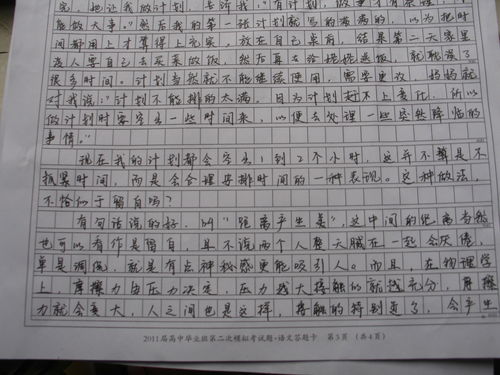 能做大事。"然后我的第一张计划就写的满满的,以为把时
间都用上才算得上充实,放在自己桌前,结果第二天家里
老人要自己去买菜做饭,然后再去给姥姥送饭,就耽误了
很多时间。计划当然就不能继续使用,需要更改,妈妈就
对我说:"计划不能排的太满,因为计划赶不上变化,所以
做计划时需空出一些时间来,以便去处理一些突然降临的
事情。"
现在我的计划都会空出1到2个小时,这并不算是不
抓紧时间,而是会合理安排时间的一种表现。这种做法,
不恰似于留白吗?
有句话说的好,叫"距离产生美",这中间的距离当然
也可以看作是留白,且不说两个人整天腻在一起会厌倦,
单是调侃,就是有点神秘感更能吸引人。而且,在物理学
上,摩擦力由压力决定,压力越大接触的就越充分,摩擦
力就会变大,人之间也是这样,接触的特别近了,会产生
2011届高中毕业班第二次模拟考试题·语文答题卡 第3页 (共4页)